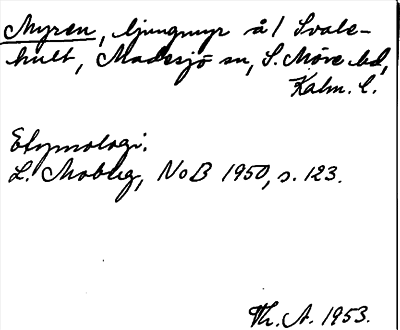 Myren, ljungmyr å / Svale-
hult, Madesjö sn, S. Möre hd,
Kalm. l.
Etymologi.
L. Moberg, NoB 1950, s. 123.
Th. A. 1953.